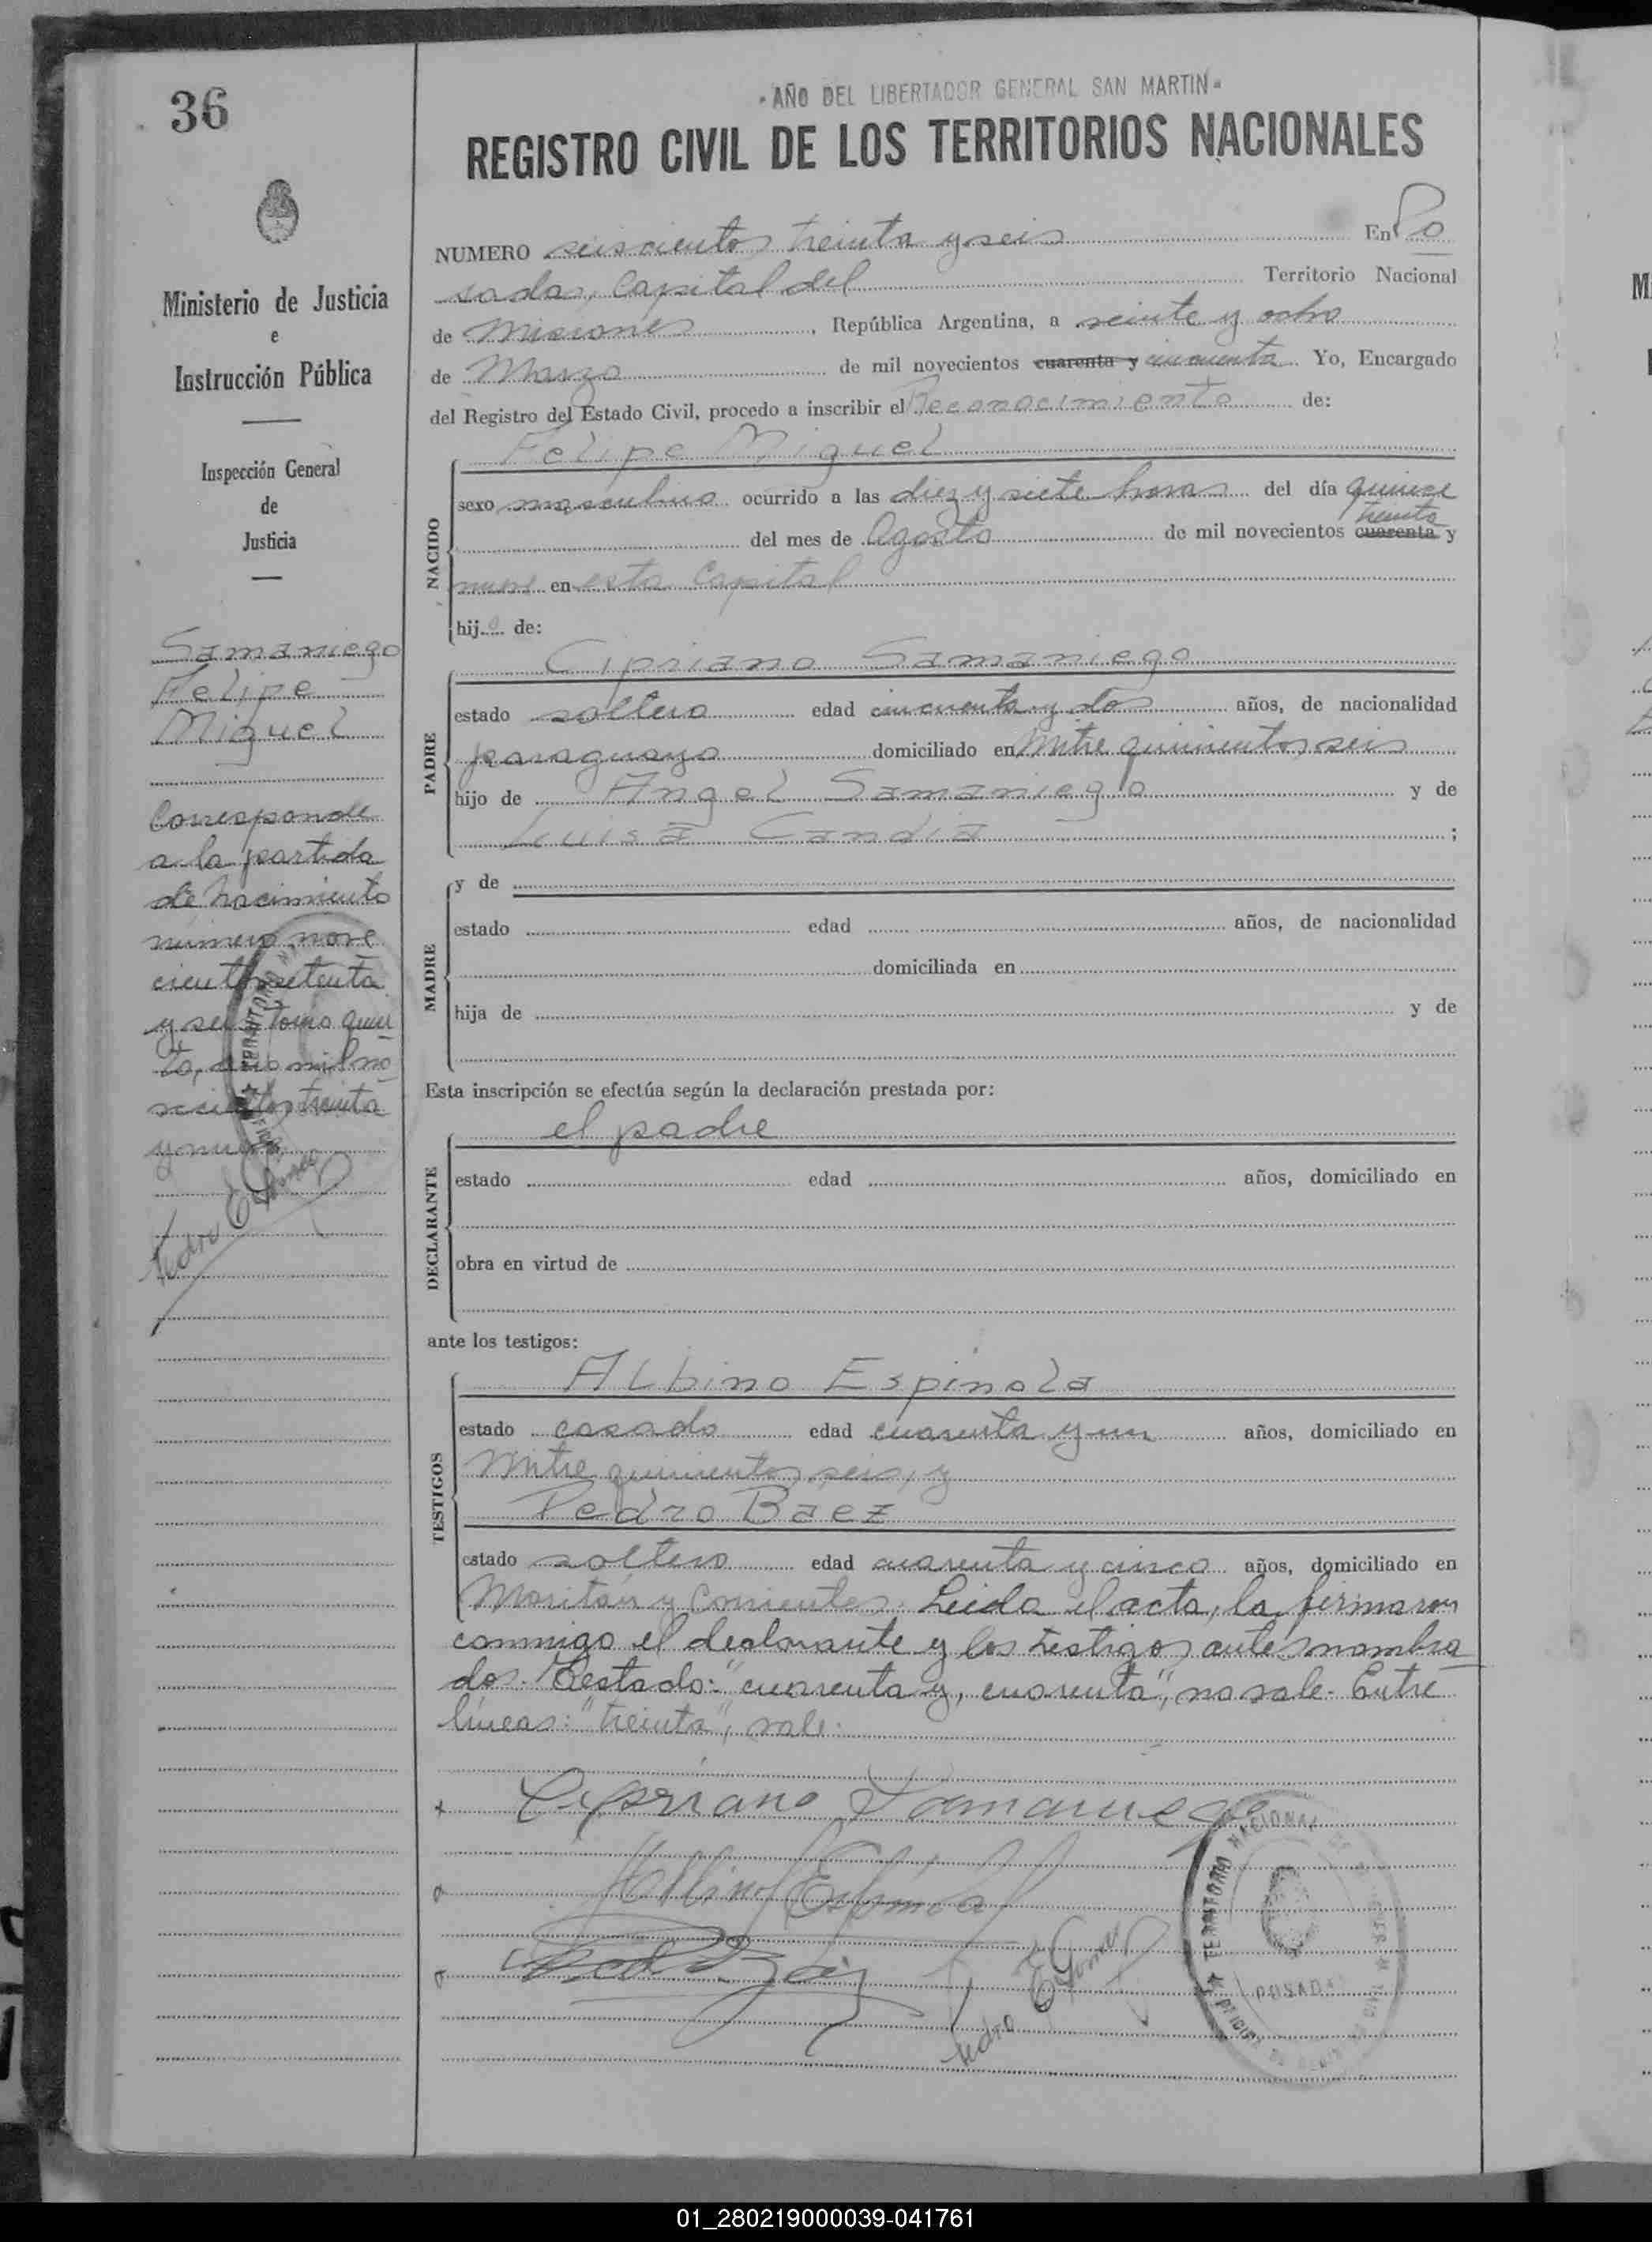 36
- AÑO DEL LIBERTADOR GENERAL SAN MARTIN -
REGISTRO CIVIL DE LOS TERRITORIOS NACIONALES
Ministerio de Justicia
e
Instrucción Pública
Inspección General
de
Justicia
Samaniego
Felipe
Miguel
Corresponde
a la partida
de nacimiento
número nove
cientos setenta
y seis tomo quin
to, año mil no
vecientos treinta
y nueve
Pedro E Gomez
NUMERO seiscientos treinta y seis En Po
sadas, Capital del Territorio Nacional
de Misiones, República Argentina, a veinte y ocho
de Marzo de mil novecientos cuarenta y cincuenta. Yo, Encargado
del Registro del Estado Civil, procedo a inscribir el Reconocimiento de:
Felipe Miguel
NACIDO
sexo masculino ocurrido a las diez y siete horas del día quince
treinta
del mes de Agosto de mil novecientos cuarenta y
nueve en esta Capital
hijo de:
Cipriano Samaniego
PADRE
estado soltero edad cincuenta y dos años, de nacionalidad
paraguaya domiciliado en Mitre quinientos seis
hijo de Angel Samaniego y de
Luisa Candia ;
MADRE
y de
estado edad años, de nacionalidad
domiciliada en
hija de y de
Esta inscripción se efectúa según la declaración prestada por:
el padre
DECLARANTE
estado edad años, domiciliado en
obra en virtud de
ante los testigos:
Albino Espinola
TESTIGOS
estado casado edad cuarenta y un años, domiciliado en
Mitre quinientos seis, y
Pedro Baez
estado soltero edad cuarenta y cinco años, domiciliado en
y Corrientes. Leida el acta, la firmaron
conmigo el declarante y los testigos antes nombra
dos. Testado: "cuarenta y, cuarenta", no vale. Entre
líneas: "treinta", vale.
x Cipriano Samaniego
Albino Espínola
Pedro E Gomez
TERRITORIO NACIONAL
POSADAS
01_280219000039-041761